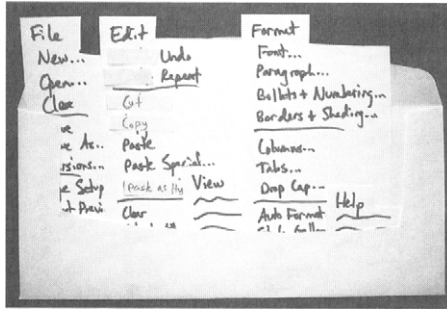 File
New...
Open...
Close
ve
ve As..
rsions...
e Setup
t Previ
Edit
Undo
Repeat
Cut
Copy
Paste
Paste Special...
Clear
View
Format
Font...
Paragraph...
Bullets + Numbering...
Borders + Shading...
Columns...
Tabs...
Drop Cap...
Auto Format
Help